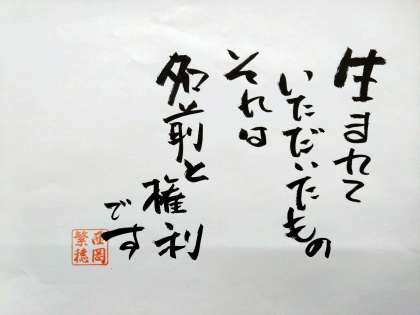 生まれて
いただいたもの
それは
名前と
権利
です
西岡
繁穂